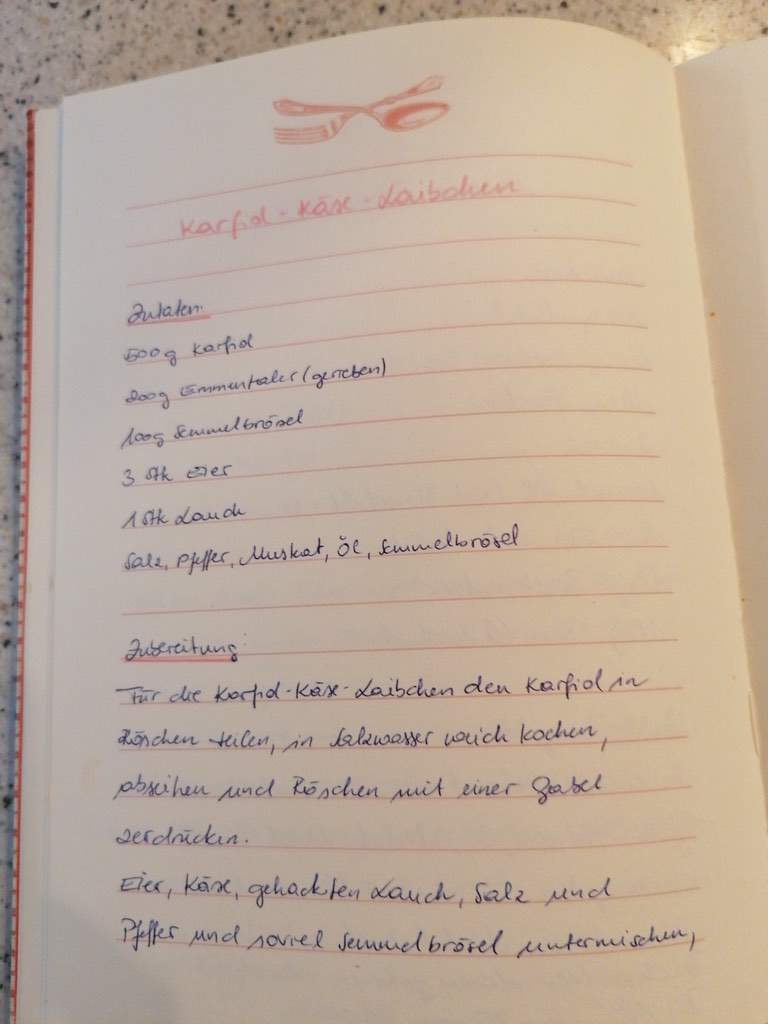 Karfiol-Käse-Laibchen
Zutaten:
500g Karfiol
200g Emmentaler (gerieben)
100g Semmelbrösel
3 Stk Eier
1 Stk Lauch
Salz, Pfeffer, Muskat, Öl, Semmelbrösel
Zubereitung:
Für die Karfiol-Käse-Laibchen den Karfiol in
Röschen teilen, in Salzwasser weich kochen,
abseihen und Röschen mit einer Gabel
zerdrücken.
Eier, Käse, gehackten Lauch, Salz und
Pfeffer und soviel Semmelbrösel untermischen,